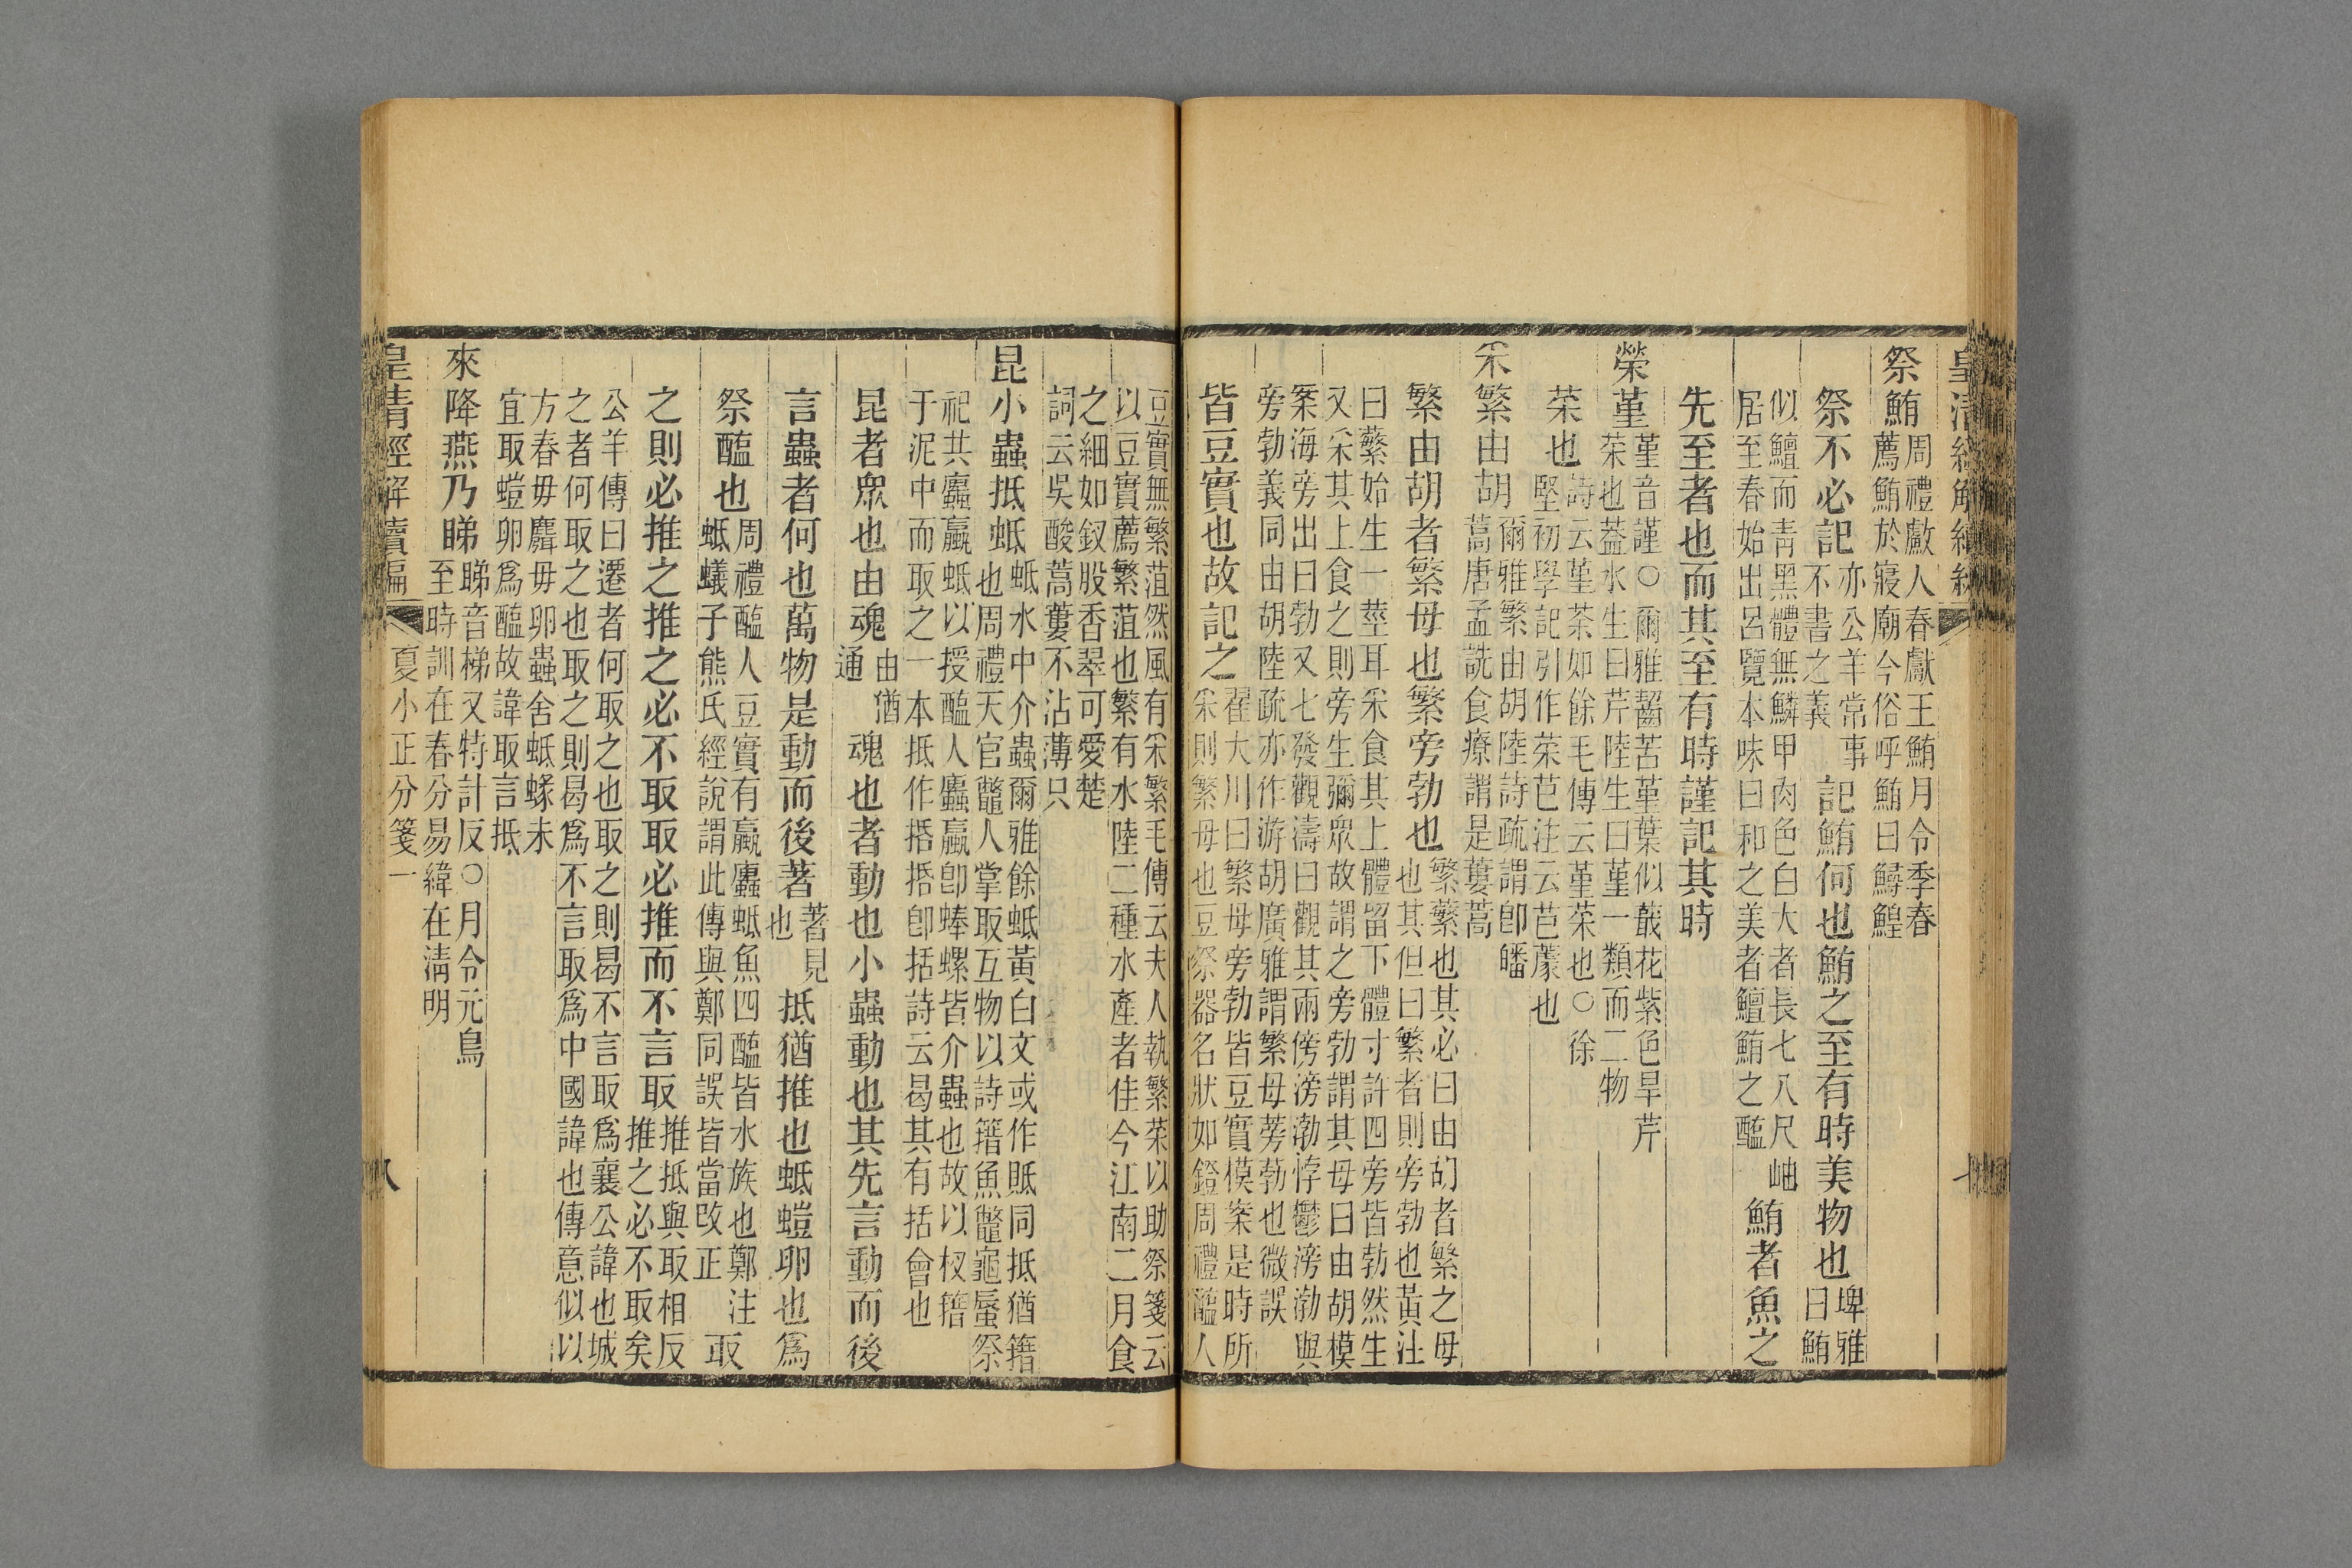 皇清經解續編
七
祭鮪周禮䱷人春獻王鮪月令季春
薦鮪於寢廟今俗呼鮪曰鱘鰉
祭不必記亦公羊常事
不書之義記鮪何也鮪之至有時美物也埤雅
曰鮪
似鱣而靑黑體無鱗甲肉色白大者長七八尺岫
居至春始出呂覽本味曰和之美者鱣鮪之醢鮪者魚之
先至者也而其至有時謹記其時
榮菫菫音謹○爾雅齧苦菫葉似蕺花紫色旱芹
菜也蓋水生曰芹陸生曰菫一類而二物
菜也詩云菫荼如飴毛傳云菫菜也○徐
堅初學記引作菜芑注云芑䕲也
采蘩由胡爾雅蘩由胡陸詩疏謂卽皤
蒿唐孟詵食療謂是蔞蒿
繁由胡者繁母也繁旁勃也繁蘩也其必曰由胡者繁之母
也其但曰繁者則旁勃也黃注
曰蘩始生一莖耳采食其上體留下體寸許四旁皆勃然生
又采其上食之則旁生彌眾故謂之旁勃謂其母曰由胡模
案海旁出曰勃又七發觀濤曰觀其兩傍滂渤怫鬱滂渤與
旁勃義同由胡陸疏亦作游胡廣雅謂繁母蒡葧也微誤
皆豆實也故記之翟大川曰繁母旁勃皆豆實模案是時所
采則繁母也豆祭器名狀如鐙周禮醢人
豆實無繁菹然風有采繁毛傳云夫人執繁菜以助祭箋云
以豆實薦繁菹也繁有水陸二種水產者佳今江南二月食
之細如釵股香翠可愛楚
詞云吳酸蒿蔞不沾薄只
昆小蟲抵蚳蚳水中介蟲爾雅餘蚳黃白文或作貾同抵猶籍
也周禮天官鼈人掌取互物以詩籍魚鼈龜蜃祭
祀共蠯蠃蚳以授醢人蠯蠃卽蜯螺皆介蟲也故以杈籍
于泥中而取之一本抵作捪捪卽括詩云曷其有括會也
昆者眾也由魂由猶
通魂也者動也小蟲動也其先言動而後
言蟲者何也萬物是動而後著著見
也抵猶推也蚳螘卵也爲
祭醢也周禮醢人豆實有蠃蠯蚳魚四醢皆水族也鄭注
蚳蟻子熊氏經說謂此傳與鄭同誤皆當改正取
之則必推之推之必不取取必推而不言取推抵與取相反
推之必不取矣
公羊傳曰遷者何取之也取之則曷不言取爲襄公諱也城
之者何取之也取之則曷爲不言取爲中國諱也傳意似以
方春毋麛毋卵蟲舍蚳蝝未
宜取螘卵爲醢故諱取言抵
來降燕乃睇睇音梯又特計反○月令元鳥
至時訓在春分易緯在淸明
皇清經解續編
夏小正分箋一
八